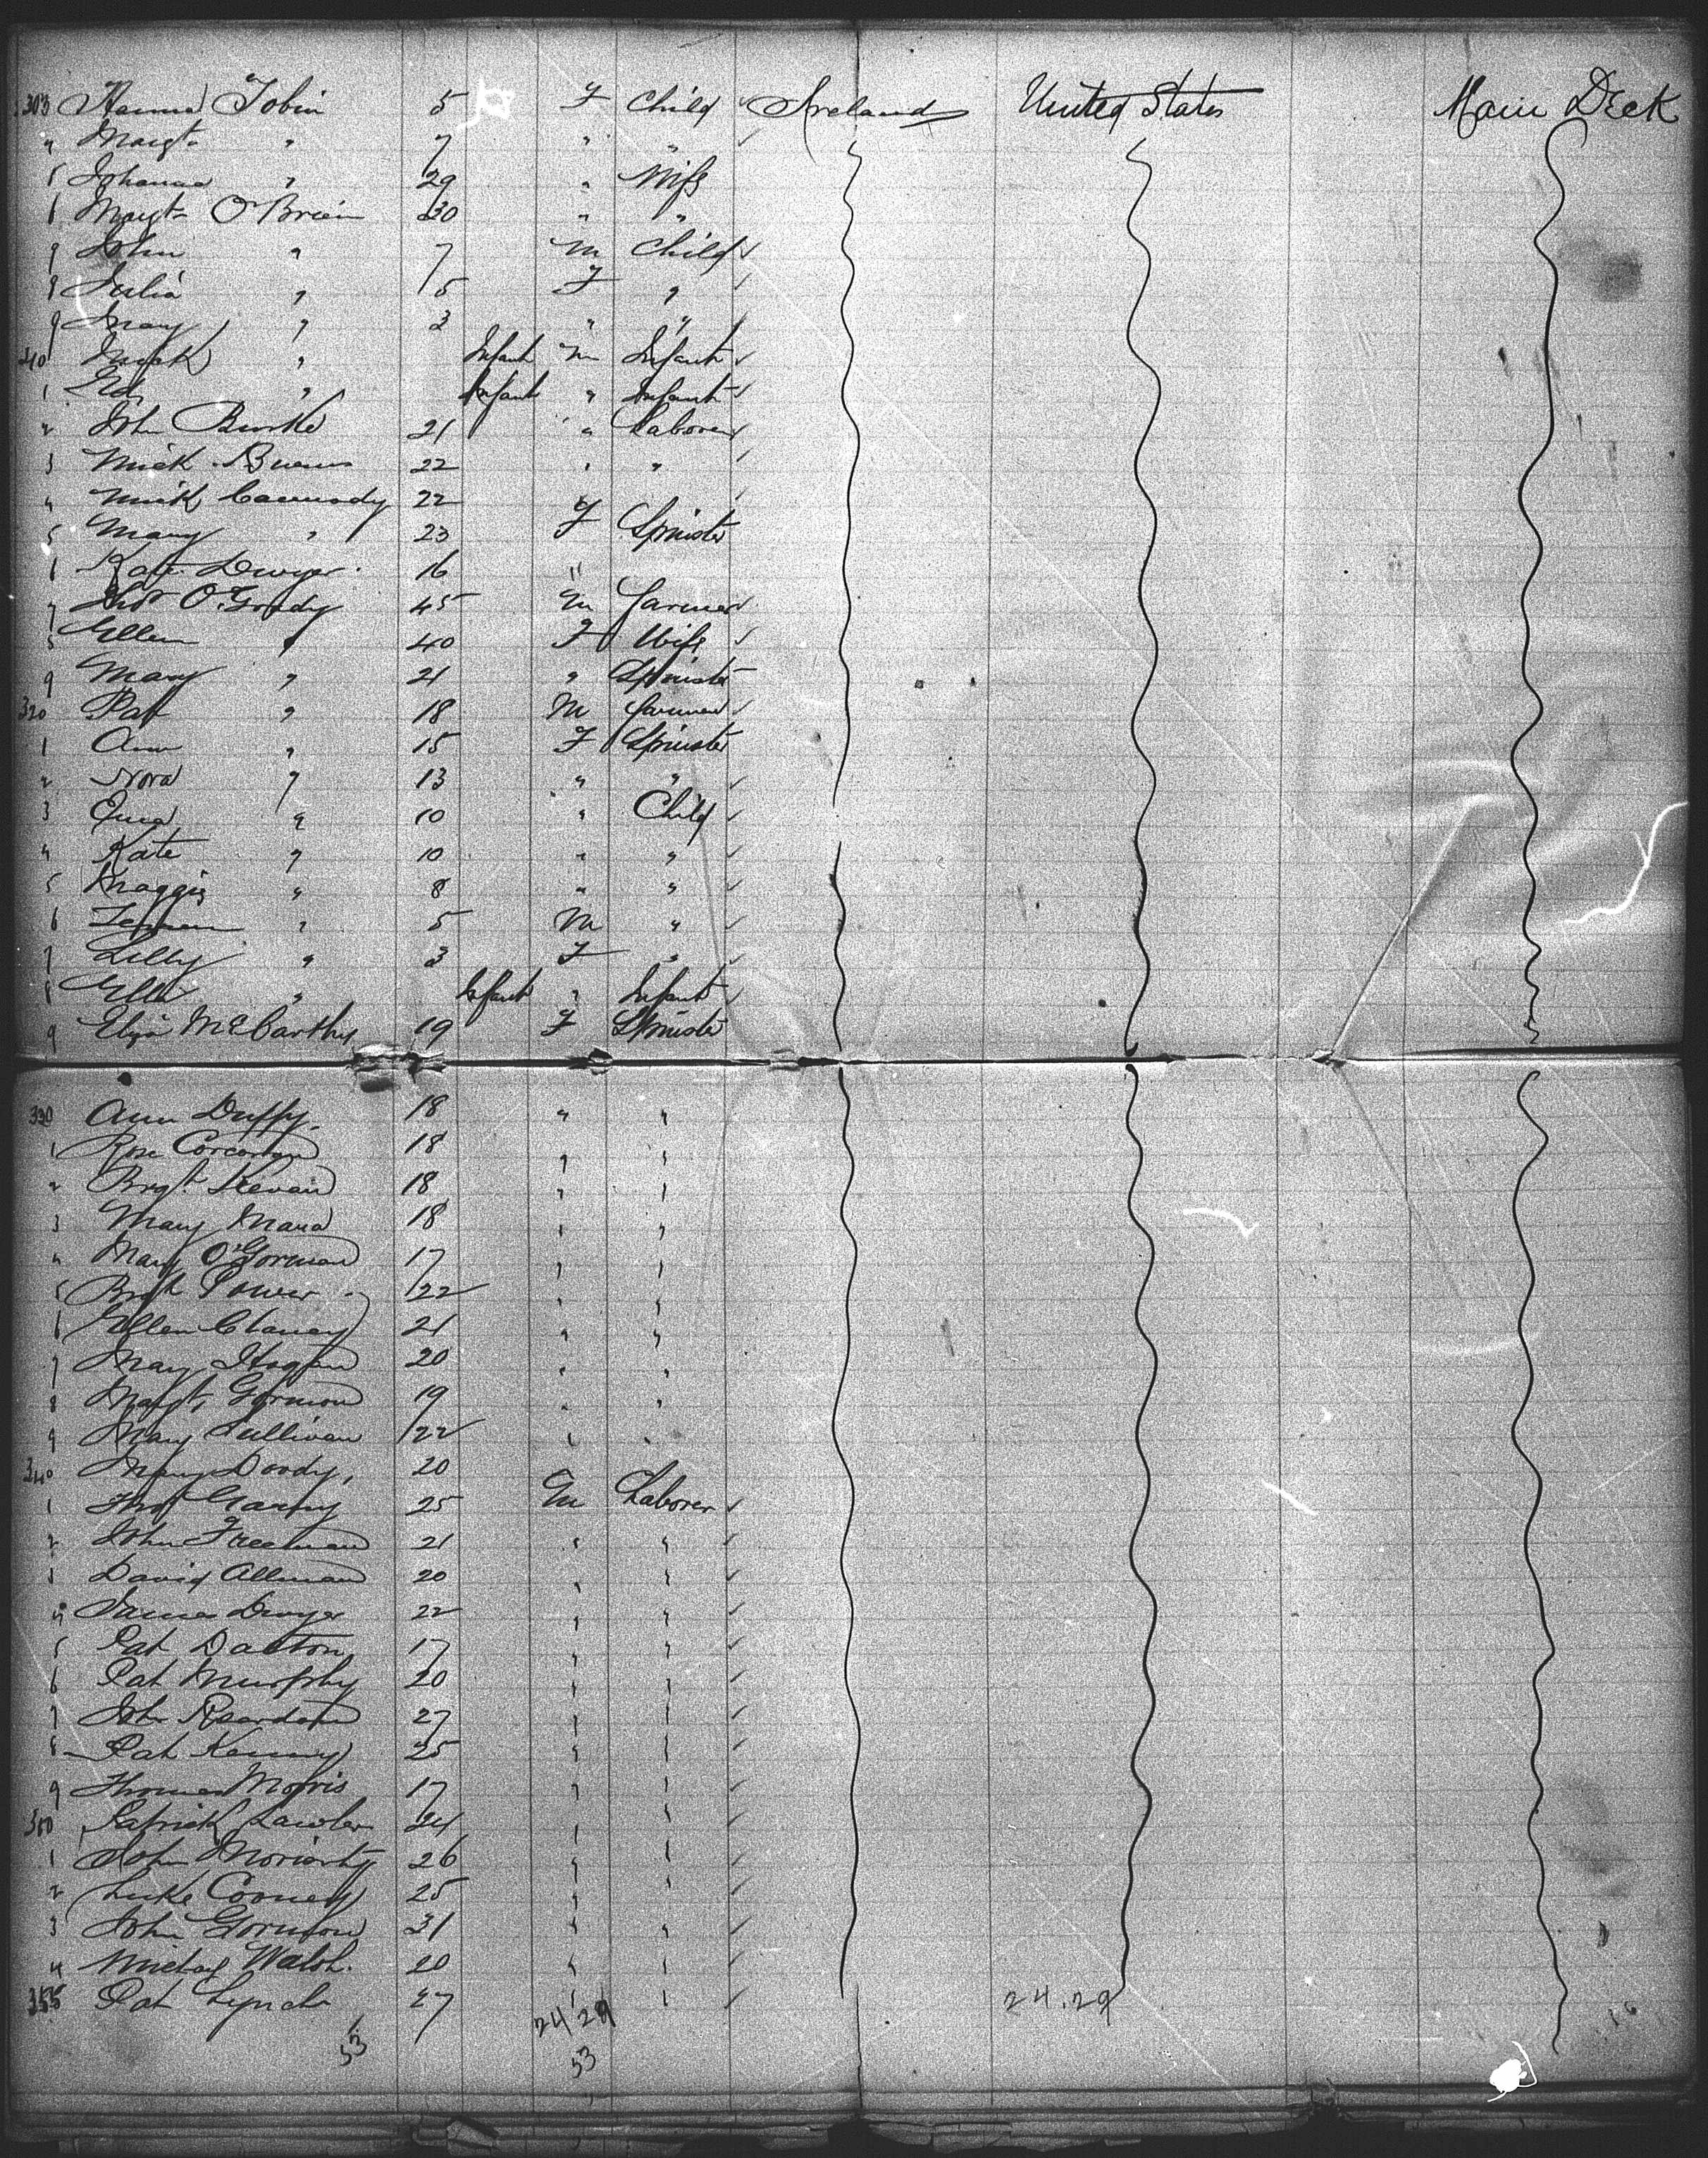 303 Hanna Tobin 5 F Child Ireland United States Main Deck
4 Margt " 7 " "
5 Johanna " 29 " Wife
6 Margt O'Brien 30 " "
7 John " 7 M Child
8 Julia " 5 F "
9 Mary " 3 " "
310 Mick " Infant M Infant
1 " Infant " Infant
2 John Burke 21 " Laborer
3 Mick 22 " "
4 Mick Carmody 22
5 Mary " 23 F Spinster
6 Kate Dwyer 16 "
7 Thos O'Grady 45 M Farmer
8 Ellen " 40 F Wife
9 Mary " 21 " Spinster
320 Pat " 18 M Farmer
1 Ann " 15 F Spinster
2 Nora " 13 " "
3 " 10 " Child
4 Kate " 10 " "
5 Maggie " 8 " "
6 " 5 M "
7 Lilly " 3 F "
8 " Infant " Infant
9 Eliza McCarthy 19 F Spinster
330 Ann Duffy 18 " "
1 Rose Corcoran 18 " "
2 Brgt. 18 " "
3 Mary Mara 18 " "
4 Mary O'Gorman 17 " "
5 Brgt Power 22 " "
6 Ellen 21 " "
7 Mary Hogan 20 " "
8 Margt Gorman 19 " "
9 Mary Sullivan 22 " "
340 Mary Doody 20
1 Thos 25 M Laborer
2 John Freeman 21 " "
3 David Allman 20 " "
4 James Dwyer 22 " "
5 Pat Dalton 17 " "
6 Pat Murphy 20 " "
7 John Reardon 27 " "
8 Pat Kenny 25 " "
9 Thomas Morris 17 " "
350 Patrick Lawler 24 " "
1 John Moriarty 26 " "
2 Luke Cooney 25 " "
3 John Gorman 31 " "
4 Michael Walsh 20 " "
355 Pat Lynch 27 " "
24 29 24.29
53 53